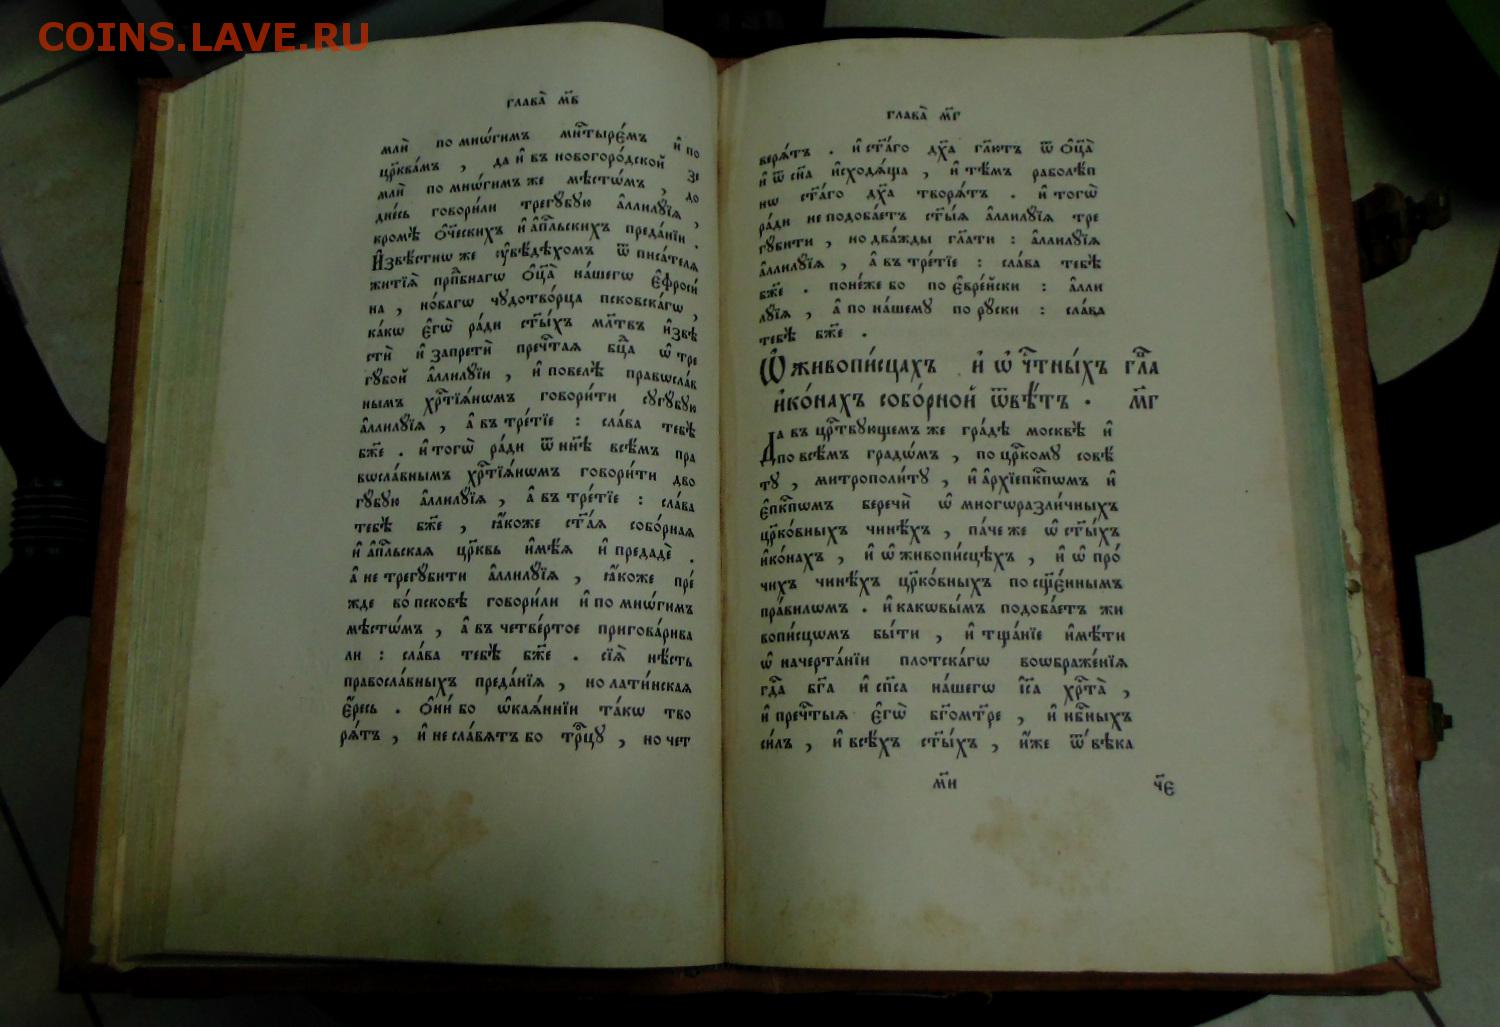 COINS.LAVE.RU
глава̀ м҃в
мли̑ по мнѡ́гимъ мн҃тырє́мъ и҆ по
цр҃квамъ , да и҆ въ новогоро́дской зе
мли̑ по мнѡ́гимъ же мѣстѡ́мъ , до
дне́сь говори́ли трегꙋ́бꙋю а҆ллилꙋ́їѧ ,
кромѣ ѻ҆ч҃ескихъ и҆ а҆п҃льскихъ преда́нїи .
И҆звѣ́стнѡ же ᲂу҆вѣ́дѣхомъ ѿ писа́телѧ
житїѧ̀ прп҃бнагѡ ѻ҆ц҃а̀ на́шегѡ є҆фроси́
на , но́вагѡ чꙋдотво́рца пско́вска́гѡ ,
ка́кѡ є҆гѡ̀ ра́ди ст҃ы́хъ мл҃твъ и҆звѣ
стѝ и҆ запретѝ преч҃тая бц҃а ѡ҆ тре
гꙋ́бой а҆ллилꙋ́їи , и҆ повелѣ̀ правѡсла́в
нымъ хр҃тїѧ́нѡмъ говори́ти сꙋгꙋ́бꙋю
а҆ллилꙋ́їѧ , а҆ въ тре́тїе : сла́ва тебѣ̀
бж҃е . и҆ тогѡ̀ ра́ди ѿ нн҃ѣ всѣ́мъ пра
вѡсла́внымъ хр҃тїѧ́нѡмъ говори́ти дво
гꙋ́бꙋю а҆ллилꙋ́їѧ , а҆ въ тре́тїе : сла́ва
тебѣ̀ бж҃е , ꙗ҆́коже ст҃а́ѧ собо́рная
и҆ а҆п҃льская цр҃квь и҆мѣ́ѧ и҆ предадѐ .
а҆ не трегꙋ́бити а҆ллилꙋ́їѧ , ꙗ҆́коже пре́
жде во пско́вѣ говори́ли и҆ по мнѡ́гимъ
мѣстѡ́мъ , а҆ въ четве́ртое пригова́рива
ли : сла́ва тебѣ̀ бж҃е . сїѧ̀ нѣ́сть
правосла́вныхъ преда́нїѧ , но лати́нская
є҆́ресь . ѻ҆ни́ бо ѡ҆кая́ннїи та́кѡ тво
ря́тъ , и҆ не сла́вятъ бо тр҃цꙋ , но чет
глава̀ м҃г
веря́тъ . и҆ ст҃а́го дх҃а гл҃ютъ ѿ ѻ҆ц҃а̀
и҆ ѿ сн҃а и҆сходя́ща , и҆ тѣ́мъ раболѣ́п
нѡ ст҃а́го дх҃а творя́тъ . и҆ тогѡ̀
ра́ди не подоба́етъ ст҃ы́ѧ а҆ллилꙋ́їѧ тре
гꙋ́бити , но два́жды гл҃ати : а҆ллилꙋ́їѧ
а҆ллилꙋ́їѧ , а҆ въ тре́тїе : сла́ва тебѣ̀
бж҃е . поне́же бо по є҆вре́йски : а҆лли
лꙋ́їѧ , а҆ по на́шемꙋ по рꙋски : сла́ва
тебѣ̀ бж҃е .
Ѡ҆ живопи́сцахъ и҆ ѡ҆ ч҃тны́хъ гл҃а
и҆ко́нахъ собо́рной ѿвѣ́тъ . м҃г
Да въ цр҃твꙋющемъ же гра́дѣ москвѣ̀ и҆
по всѣ́мъ градѡ́мъ , по цр҃комꙋ совѣ́
тꙋ , митрополи́тꙋ , и҆ а҆рхїеп҃кпѡмъ и҆
є҆п҃кпѡмъ беречѝ ѡ҆ многѡразли́чныхъ
цр҃ко́вныхъ чинѣ́хъ , па́че же ѡ҆ ст҃ы́хъ
и҆ко́нахъ , и҆ ѡ҆ живопи́сцѣхъ , и҆ ѡ҆ про́
чихъ чинѣ́хъ цр҃ко́вныхъ по сщ҃е́ннымъ
пра́вилѡмъ . и҆ каковы́мъ подоба́етъ жи
вопи́сцѡмъ бы́ти , и҆ тща́нїе и҆мѣ́ти
ѡ҆ начерта́нїи плотска́гѡ воѡбраже́нїѧ
гд҃а бг҃а и҆ сп҃са на́шегѡ і҆с҃а хр҃та̀ ,
и҆ преч҃тыѧ є҆гѡ̀ бг҃омт҃ре , и҆ нб҃ныхъ
си́лъ , и҆ всѣ́хъ ст҃ы́хъ , и҆̀же ѿ вѣ́ка
м҃и ч҃є